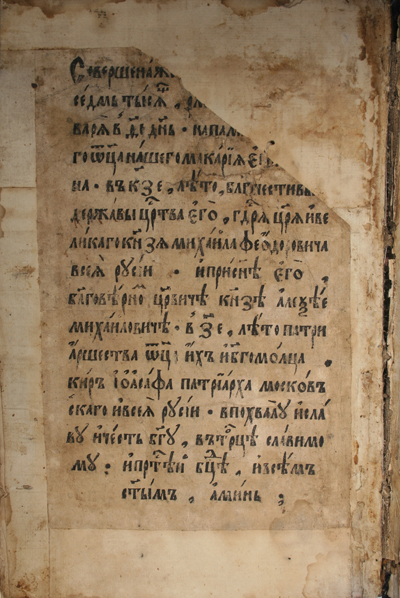 Совершена
се́дмь ты́сѧ҃
варѧ в҃
гѡ ѿц҃а на́шего мака́рїѧ є҆
на · въ к҃зе , лѣ́то , бл҃гочестивы
держа́вы ц҃рства є҆гѡ̀ , гд҃рѧ цр҃ѧ и҆ ве
ли́каго кн҃зѧ михаи́ла ѳео́доровича
всеѧ̀ рꙋсі́и · и҆ при сн҃ѣ є҆гѡ̀
бл҃говѣ́рно цр҃вичѣ кн҃зѣ а҆леѯѣ́е
миха́иловичѣ · в з҃е , лѣ́то патри
а́ршества ѿц҃ и҆́хъ и҆ бг҃омо́лца
ки́ръ і҆ѡаса́фа патрїа́рха моско́въ
скаго и҆ всеѧ̀ рꙋсі́и · в похвалꙋ̀ и҆ сла́
вꙋ и҆ че́сть бг҃ꙋ , въ трⷪ҇цѣ сла́вимо
мꙋ · и҆ прⷭ҇тѣи бц҃ѣ , и҆ всѣ́мъ
ст҃ы́мъ , а҆ми́нь ·